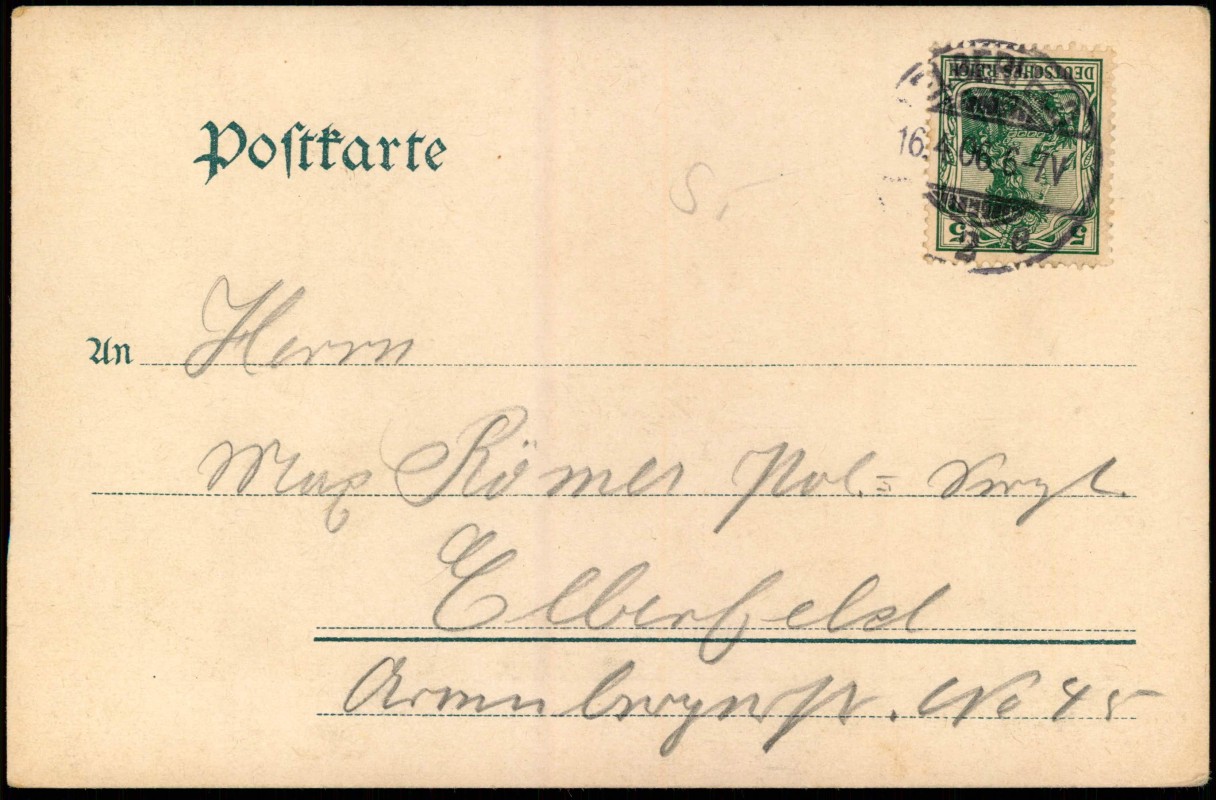 Postkarte
DEUTSCHES REICH
BERLIN
16.4.06.6-7V
5 5
2 e
S.
An Herrn
Max Römer Pol.= Sergt.
Elberfeld
Arrenbergerstr. No 45